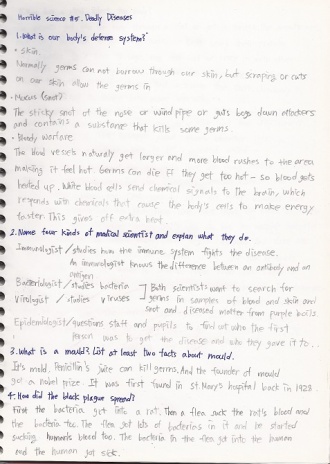 Horrible science #5. Deadly Diseases
1. What is our body's defense system?
• Skin.
Normally germs can not burrow through our skin, but scraping or cuts
on our skin allow the germs in
• Mucus (snot)
The sticky snot of the nose or wind pipe or guts bogs down attackers
and contains a substance that kills some germs.
• Bloody warfare
The blood vessels naturally get larger and more blood rushes to the area
making it feel hot Germs can die if they get too hot - so blood gets
heated up. White blood cells send chemical signals to the brain, which
responds with chemicals that cause the body's cells to make energy
faster This gives off extra heat.
2. Name four kinds of medical scientist and explain what they do.
Immunologist / studies how the immune system fights the disease.
An immunologist knows the difference between an antibody and an
antigen
Bacteriologist / studies bacteria ] Both scientists want to search for
Virologist / studies viruses germs in samples of blood and skin and
snot and diseased matter from purple boils
Epidemiologist / questions staff and pupils to find out who the first
person was to get the disease and who they gave it to..
3. What is a mould? List at least two facts about mould.
It's mold. Penicillin's juice can kill germs. And the founder of mould
got a nobel prize. It was first found in St. Mary's hospital back in 1928.
4. How did the black plague spread?
First the bacteria get into a rat. Then a flea suck the rat's blood and
the bacteria too. The flea got lots of bacterias in it and he started
sucking human's blood too. The bacteria in the flea got into the human
and the human got sick.